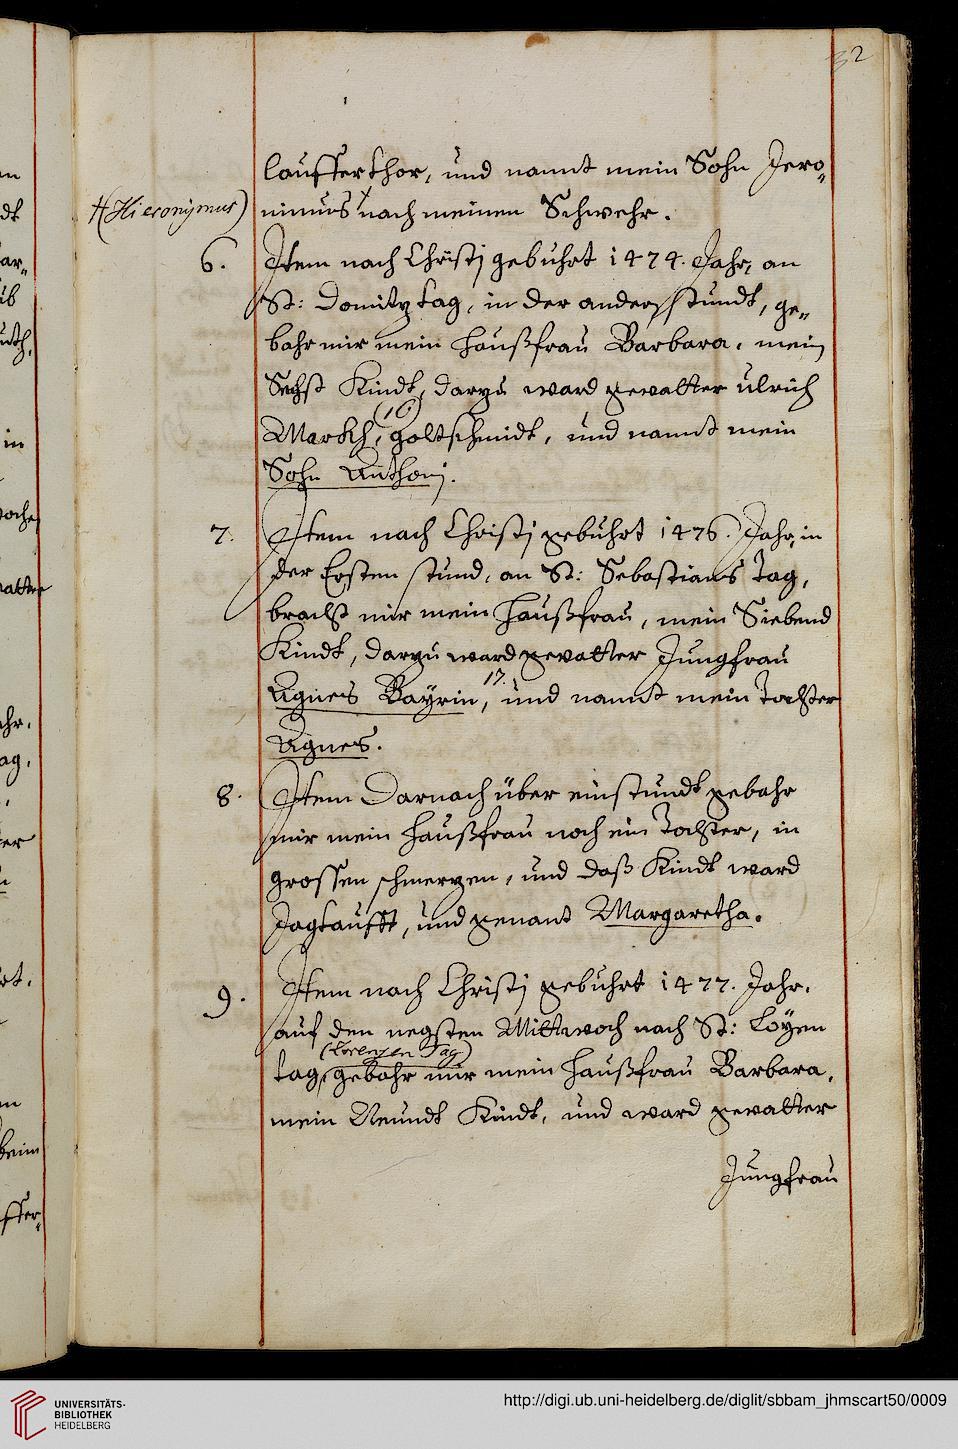 32
laufferthor, und nannt mein Sohn Jero-
#(Hieronymus) nimus + nach meinen Schwehr.
6. Item nach Christj gebuhrt 1474. Jahr, an
St: Domitz tag, in der ander stundt, ge-
bahr mir mein Haußfrau Barbara, mein
Sechst Kindt, darzu ward gevatter Ulrich
(16)
Markh, goltschmidt, und nannt mein
Sohn Anthoni.
7. Item nach Christj gebuhrt 1476. Jahr, in
der Ersten stund, an St: Sebastians Tag,
bracht mir mein Haußfrau, mein Siebend
Kindt, darzu ward gevatter Jungfrau
17.
Agnes Bayrin, und nannt mein Tochter
Agnes.
8. Item Darnach über ein stundt gebahr
mir mein Haußfrau noch ein Tochter, in
grossen schmerzen, und daß Kindt ward
Jagtaufft, und genant Margaretha.
9. Item nach Christj gebuhrt 1477. Jahr.
auf den negsten Mittwoch nach St: Loÿen
(Lorenzen Tag)
tag, gebahr mir mein Haußfrau Barbara,
mein Neundt Kindt, und ward gevatter
Jungfrau
UNIVERSITÄTS-
BIBLIOTHEK
HEIDELBERG
http://digi.ub.uni-heidelberg.de/diglit/sbbam_jhmscart50/0009